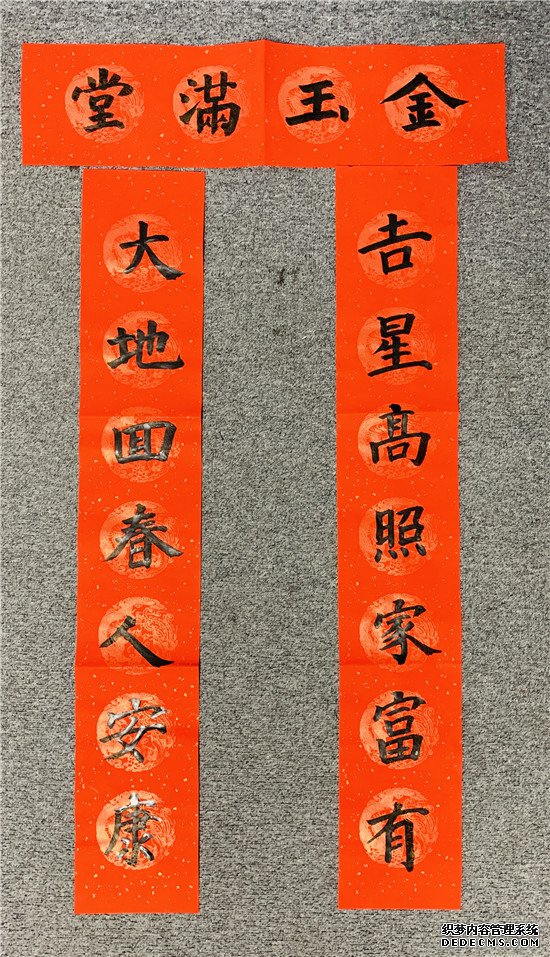 金玉滿堂
吉星高照家富有
大地回春人安康
织梦内容管理系统
DEDECMS.COM